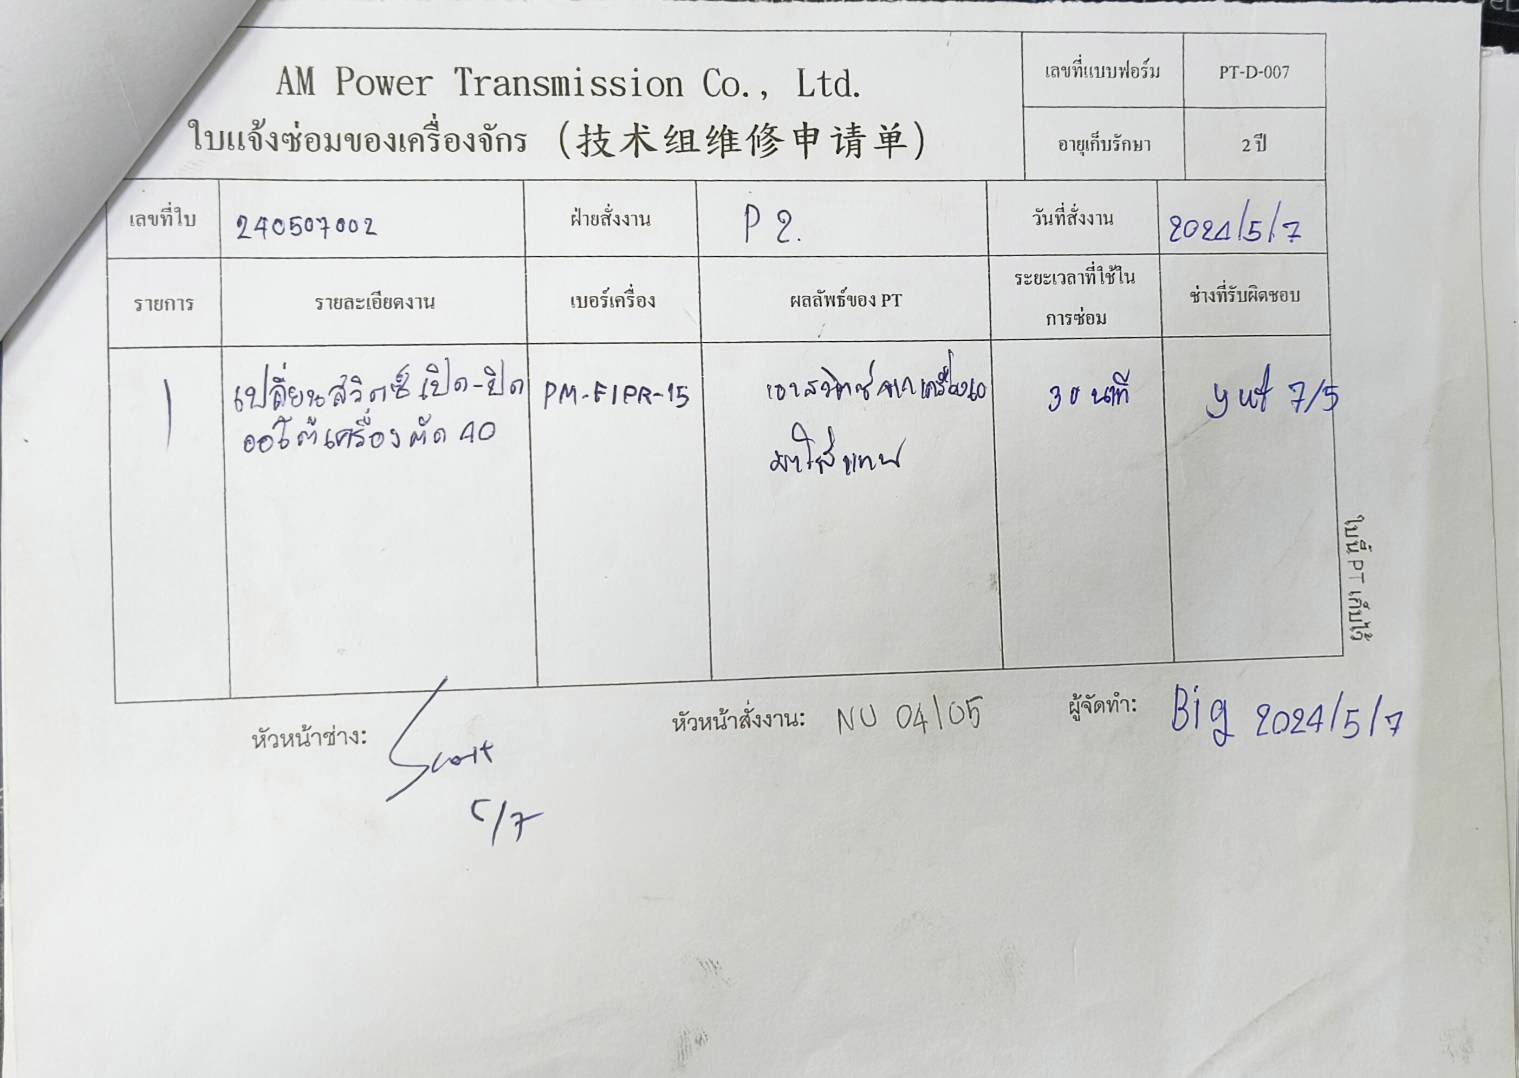 AM Power Transmission Co., Ltd.
ใบแจ้งซ่อมของเครื่องจักร (技术组维修申请单)
เลขที่แบบฟอร์ม PT-D-007
อายุเก็บรักษา 2 ปี
เลขที่ใบ 240507002 ฝ่ายสั่งงาน P 2. วันที่สั่งงาน 2024/5/7
รายการ รายละเอียดงาน เบอร์เครื่อง ผลลัพธ์ของ PT ระยะเวลาที่ใช้ใน ช่างที่รับผิดชอบ
การซ่อม
1 เปลี่ยนสวิตซ์ เปิด-ปิด PM-F1PR-15 เอาสวิตซ์จากเครื่อง 30 นาที 7/5
ออโต้เครื่องตัด 40 มาใส่แทน
ใบนี้ PT เก็บไว้
หัวหน้าช่าง: Scott
5/7
หัวหน้าสั่งงาน: NU 04/05
ผู้จัดทำ: Big 2024/5/7